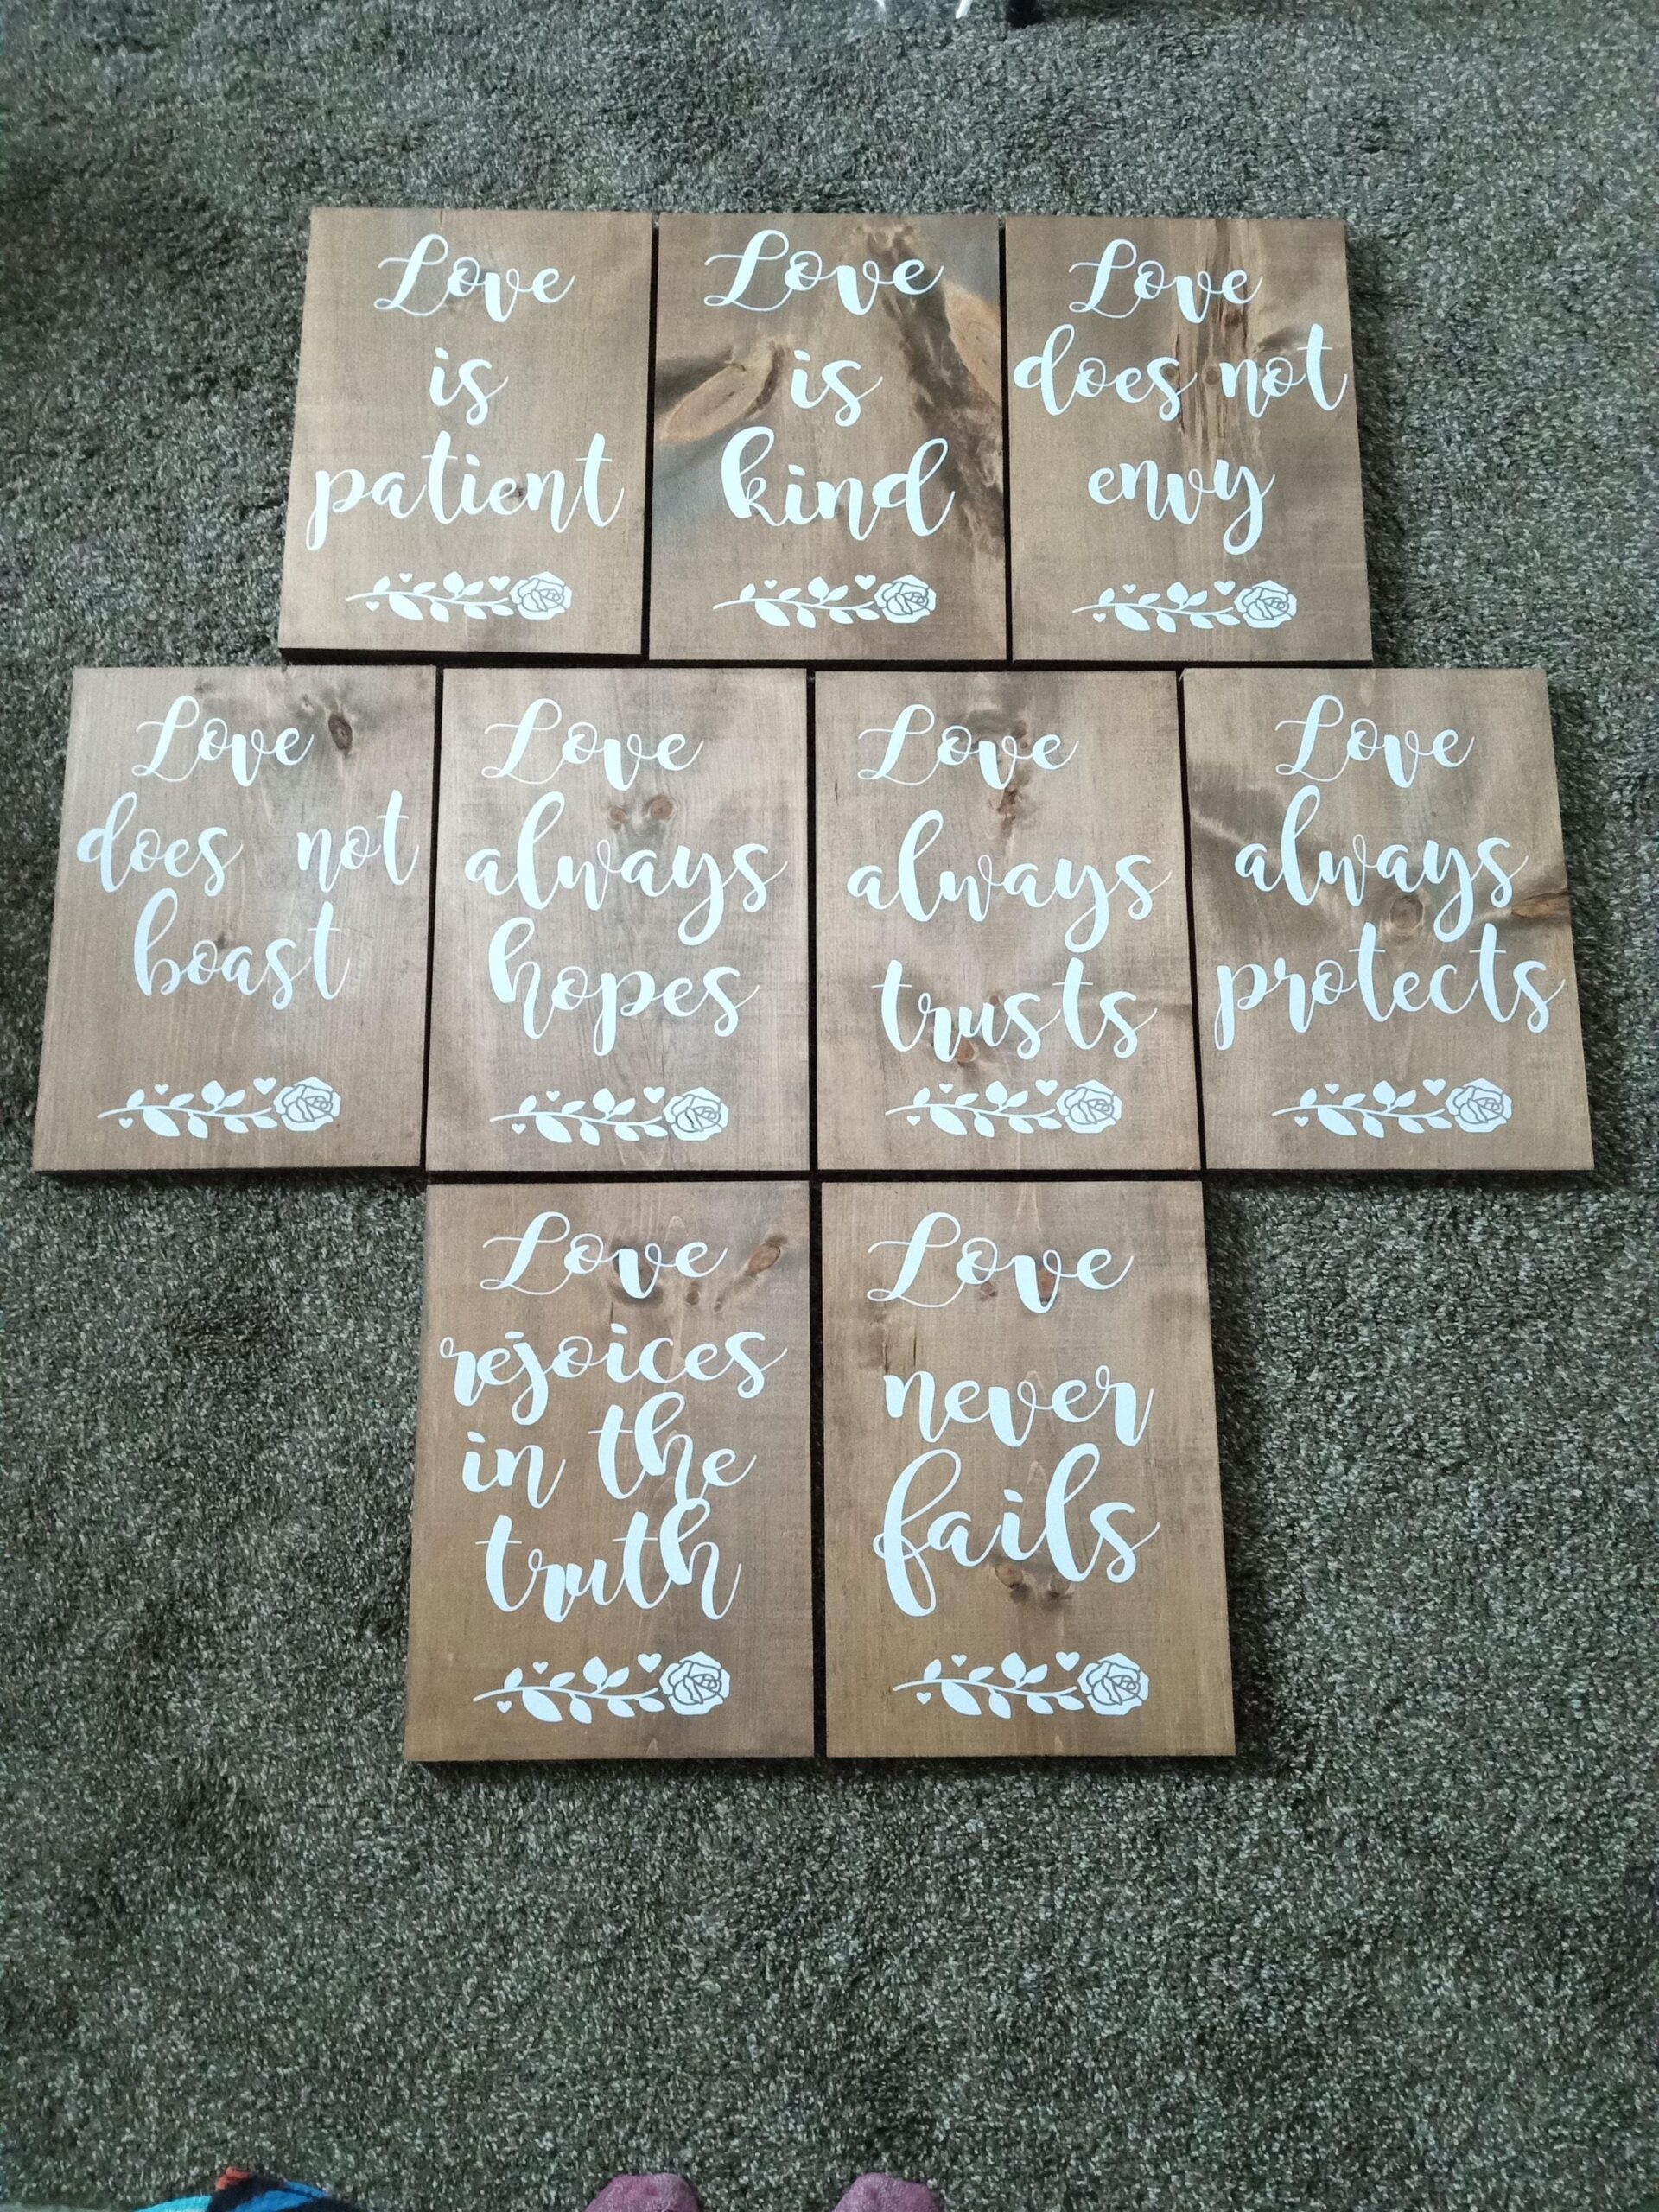 Love
is
patient
Love
is
kind
Love
does not
envy
Love
does not
boast
Love
always
hopes
Love
always
trusts
Love
always
protects
Love
rejoices
in the
truth
Love
never
fails